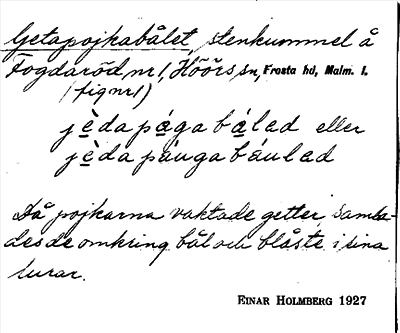 Getapojkabålet, stenkummel å
Fogdaröd nr 1, Höörs sn, Frosta hd, Malm. l.
(fig nr 1)
jèdapágabálad eller
jèdapáugabáulad
Då pojkarna vaktade getter samla-
des de omkring bål och blåste i sina
lurar.
EINAR HOLMBERG 1927